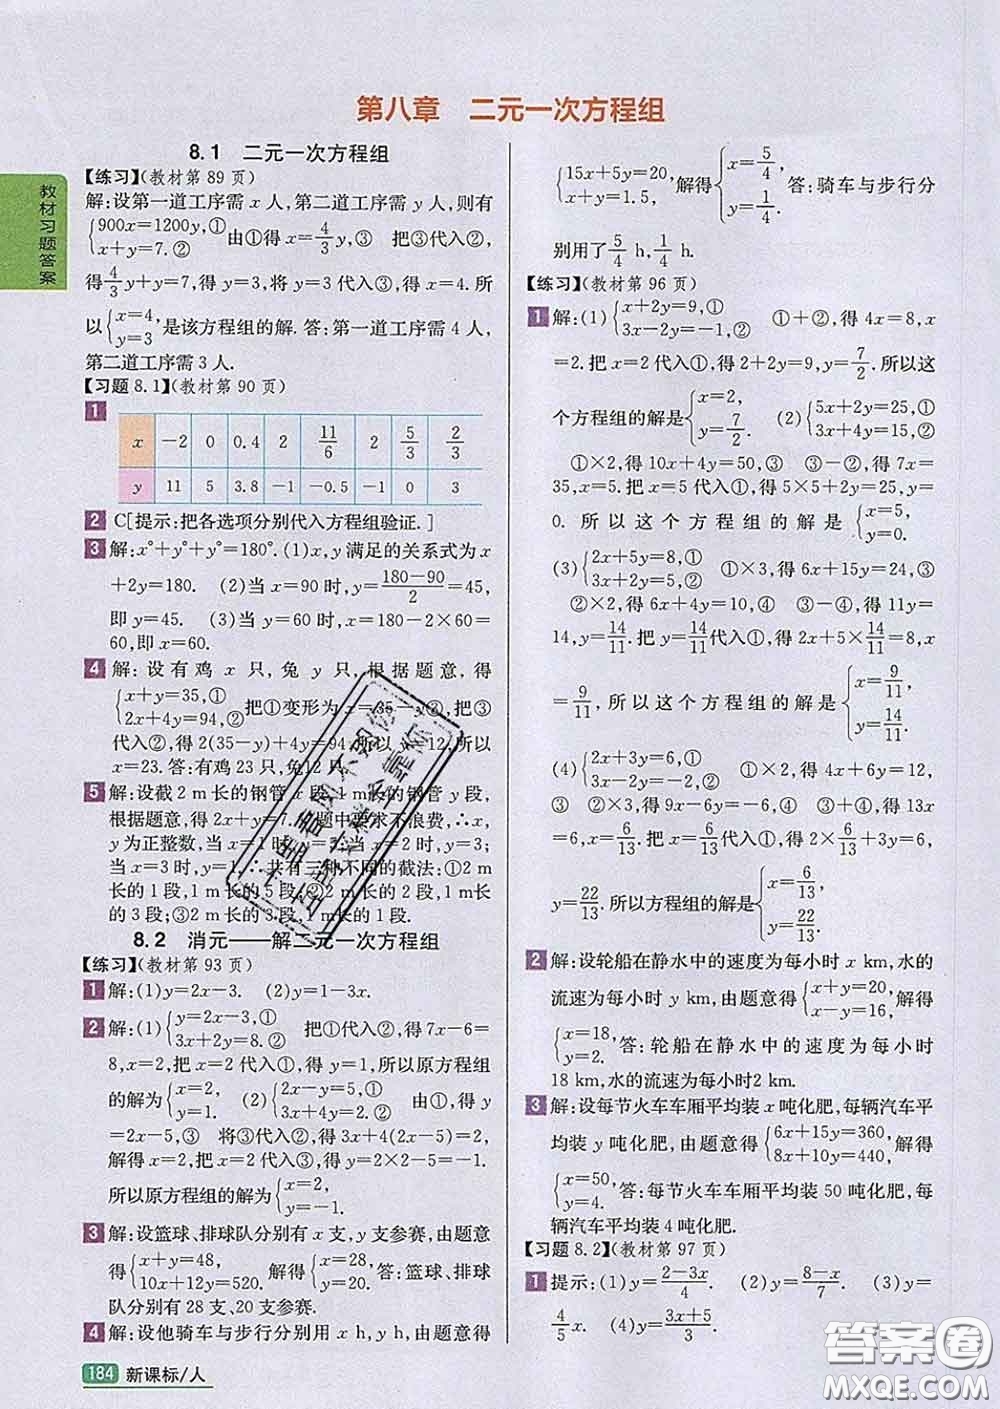 第八章 二元一次方程组
教材习题答案
8.1 二元一次方程组
【练习】(教材第 89 页)
解:设第一道工序需 x 人,第二道工序需 y 人,则有
{900x=1200y,① x+y=7.② 由①得 x=4/3 y,③ 把③代入②,
得 4/3 y+y=7,得 y=3,将 y=3 代入③,得 x=4. 所
以 {x=4, y=3 是该方程组的解. 答:第一道工序需 4 人,
第二道工序需 3 人.
【习题 8.1】(教材第 90 页)
1
x −2 0 0.4 2 11/6 2 5/3 2/3
y 11 5 3.8 −1 −0.5 −1 0 3
2 C[提示:把各选项分别代入方程组验证.]
3 解:x°+y°+y°=180°. (1)x,y 满足的关系式为 x
+2y=180. (2)当 x=90 时,y=(180−90)/2=45,
即 y=45. (3)当 y=60 时,x=180−2×60=
60,即 x=60.
4 解: 设 有 鸡 x 只, 兔 y 只, 根 据 题 意, 得
{x+y=35,① 2x+4y=94,② 把①变形为 x=35−y,③ 把③
代入②,得 2(35−y)+4y=94.所以 y=12.所以
x=23.答:有鸡 23 只,兔 12 只.
5 解:设截 2 m 长的钢管 x 段,1 m 长的钢管 y 段,
根据题意,得 2x+y=7.∵题中要求不浪费,∴x,
y 为正整数,当 x=1 时,y=5;当 x=2 时,y=3;
当 x=3 时,y=1.∴共有三种不同的截法:①2 m
长的 1 段,1 m 长的 5 段;②2 m 长的 2 段,1 m
长的 3 段;③2 m 长的 3 段,1 m 长的 1 段.
8.2 消元——解二元一次方程组
【练习】(教材第 93 页)
1 解:(1)y=2x−3. (2)y=1−3x.
2 解:(1){y=2x−3,① 3x+2y=8.② 把①代入②,得 7x−6=
8,x=2,把 x=2 代入①,得 y=1,所以原方程组
的解为 {x=2, y=1. (2){2x−y=5,① 3x+4y=2.② 由①,得 y
=2x−5 ③ 将③代入②,得 3x+4(2x−5)=2.
解得 x=2,把 x=2 代入③,得 y=2×2−5=−1.
所以原方程组的解为 {x=2, y=−1.
3 解:设篮球、排球队分别有 x 支,y 支参赛,由题意
得 {x+y=48, 10x+12y=520. 所以 {x=28, y=20. 答:篮球、排球
队分别有 28 支、20 支参赛.
4 解:设他骑车与步行分别用 x h,y h,由题意得
{15x+5y=20, x+y=1.5, 解得 {x=5/4, y=1/4. 答:骑车与步行分
别用了 5/4 h,1/4 h.
【练习】(教材第 96 页)
1 解:(1){x+2y=9,① 3x−2y=−1,② ①+②,得 4x=8,x
=2.把 x=2 代入①,得 2+2y=9,y=7/2. 所以这
个方程组的解是 {x=2, y=7/2. (2){5x+2y=25,① 3x+4y=15,②
①×2,得 10x+4y=50,③ ③−②,得 7x=
35,x=5.把 x=5 代入①,得 5×5+2y=25,y=
0. 所 以 这 个 方 程 组 的 解 是 {x=5, y=0.
(3){2x+5y=8,① 3x+2y=5,② ①×3,得 6x+15y=24,③
②×2,得 6x+4y=10,④ ③−④,得 11y=
14,y=14/11.把 y=14/11 代入①,得 2x+5×14/11=8,x
=9/11,所 以 这 个 方 程 组 的 解 是 {x=9/11, y=14/11.
(4){2x+3y=6,① 3x−2y=−2,② ①×2,得 4x+6y=12,
③ ②×3,得 9x−6y=−6,④ ③+④,得 13x
=6,x=6/13.把 x=6/13 代入①,得 2×6/13+3y=6,
y=22/13.所以方程组的解是 {x=6/13, y=22/13.
2 解:设轮船在静水中的速度为每小时 x km,水的
流速为每小时 y km,由题意得 {x+y=20, x−y=16, 所以
{x=18, y=2. 答:轮船在静水中的速度为每小时
18 km,水的流速为每小时2 km.
3 解:设每节火车车厢平均装 x 吨化肥,每辆汽车平
均装 y 吨化肥,由题意得 {6x+15y=360, 8x+10y=440, 解得
{x=50, y=4. 答:每节火车车厢平均装 50 吨化肥,每
辆汽车平均装 4 吨化肥.
【习题 8.2】(教材第 97 页)
1 提示:(1)y=(2−3x)/4. (2)y=(8−x)/7. (3)y=
4/5 x. (4)y=(3x+5)/3.
184 新课标/人
答案圈
MXQE.COM